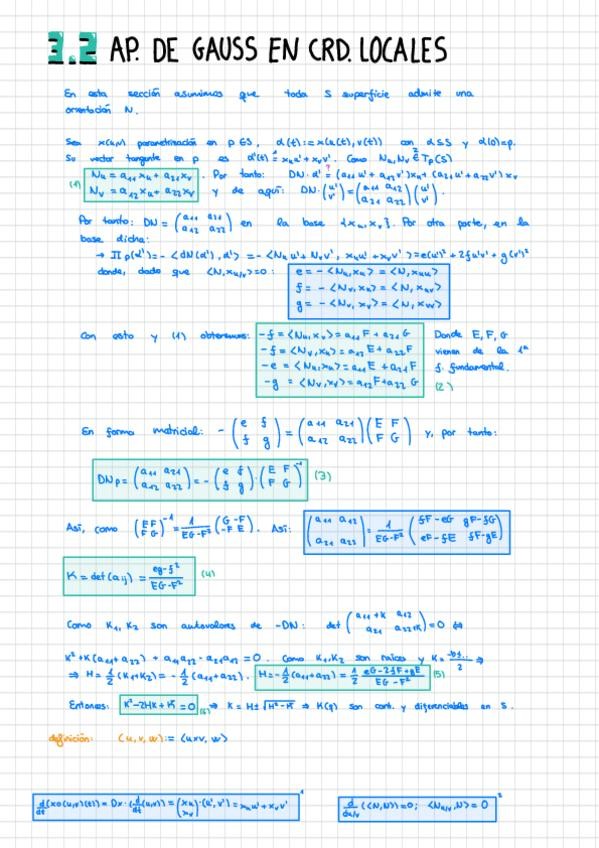 3.2 AP. DE GAUSS EN CRD. LOCALES
En esta sección asumimos que toda S superficie admite una
orientación N.
Sea x(u,v) parametrización en p∈S, α(t):=x(u(t),v(t)) con α⊆S y α(0)=p.
Su vector tangente en p es α'(t) =¹ x_u u' + x_v v'. Como N_u, N_v ∈² T_p(S)
(1) N_u = a₁₁x_u + a₂₁x_v
N_v = a₁₂x_u + a₂₂x_v
. Por tanto: DN·α' =? (a₁₁u' + a₁₂v')x_u + (a₂₁u' + a₂₂v')x_v
y de aquí: DN·(u' v') = (a₁₁ a₁₂ / a₂₁ a₂₂)(u' v').
Por tanto: DN = (a₁₁ a₂₁ / a₁₂ a₂₂) en la base {x_u, x_v}. Por otra parte, en la
base dicha:
→ II_p(α') = -<dN(α'), α'> = -<N_u u' + N_v v', x_u u' + x_v v'> = e(u')² + 2f u'v' + g(v')²
donde, dado que <N, x_u/v> = 0:
e = -<N_u, x_u> = <N, x_uu>
f = -<N_v, x_u> = <N, x_uv>
g = -<N_v, x_v> = <N, x_vv>
Con esto y (1) obtenemos:
-f = <N_u, x_v> = a₁₁F + a₂₁G
-f = <N_v, x_u> = a₁₂E + a₂₂F
-e = <N_u, x_u> = a₁₁E + a₂₁F
-g = <N_v, x_v> = a₁₂F + a₂₂G
Donde E, F, G
vienen de la 1ª
f. fundamental.
(2)
En forma matricial: -(e f / f g) = (a₁₁ a₂₁ / a₁₂ a₂₂)(E F / F G) y, por tanto:
DN_p = (a₁₁ a₂₁ / a₁₂ a₂₂) = -(e f / f g)·(E F / F G)⁻¹ (3)
Así, como (E F / F G)⁻¹ = 1/(EG-F²) (G -F / -F E). Así: (a₁₁ a₁₂ / a₂₁ a₂₂) = 1/(EG-F²) (fF-eG gF-fG / eF-fE fF-gE)
K = det(a_ij) = (eg-f²)/(EG-F²) (4)
Como K₁, K₂ son autovalores de -DN: det(a₁₁+K a₁₂ / a₂₁ a₂₂+K) = 0 ⇔
K² + K(a₁₁+a₂₂) + a₁₁a₂₂ - a₂₁a₁₂ = 0. Como K₁, K₂ son raíces y K = -b±.../2 ⇒
⇒ H = 1/2 (K₁+K₂) = -1/2 (a₁₁+a₂₂). H = -1/2 (a₁₁+a₂₂) = 1/2 (eG-2fF+gE)/(EG-F²) (5)
Entonces: K²-2HK+K = 0 (6) ⇒ K = H±√(H²-K) ⇒ K(q) son cont. y diferenciables en S.
definición: (u, v, w) := <u×v, w>
d/dt (x∘(u,v)(t)) = Dx·(d/dt (u,v)) = (x_u / x_v)·(u', v') = x_u u' + x_v v' ¹
d/du/v (<N,N>) = 0; <N_u/v, N> = 0 ²